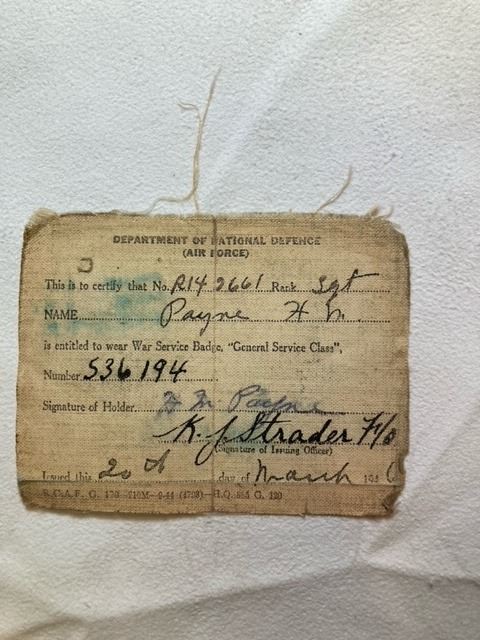 DEPARTMENT OF NATIONAL DEFENCE
(AIR FORCE)
This is to certify that No. R142661 Rank Sgt
NAME Payne H M.
is entitled to wear War Service Badge, "General Service Class",
Number 536194
Signature of Holder H M Payne
K. J. Strader F/O
(Signature of Issuing Officer)
Issued this 20th day of March 194
R.C.A.F. G. 170 210M—9-44 (4798)—H.Q. 885 G. 120